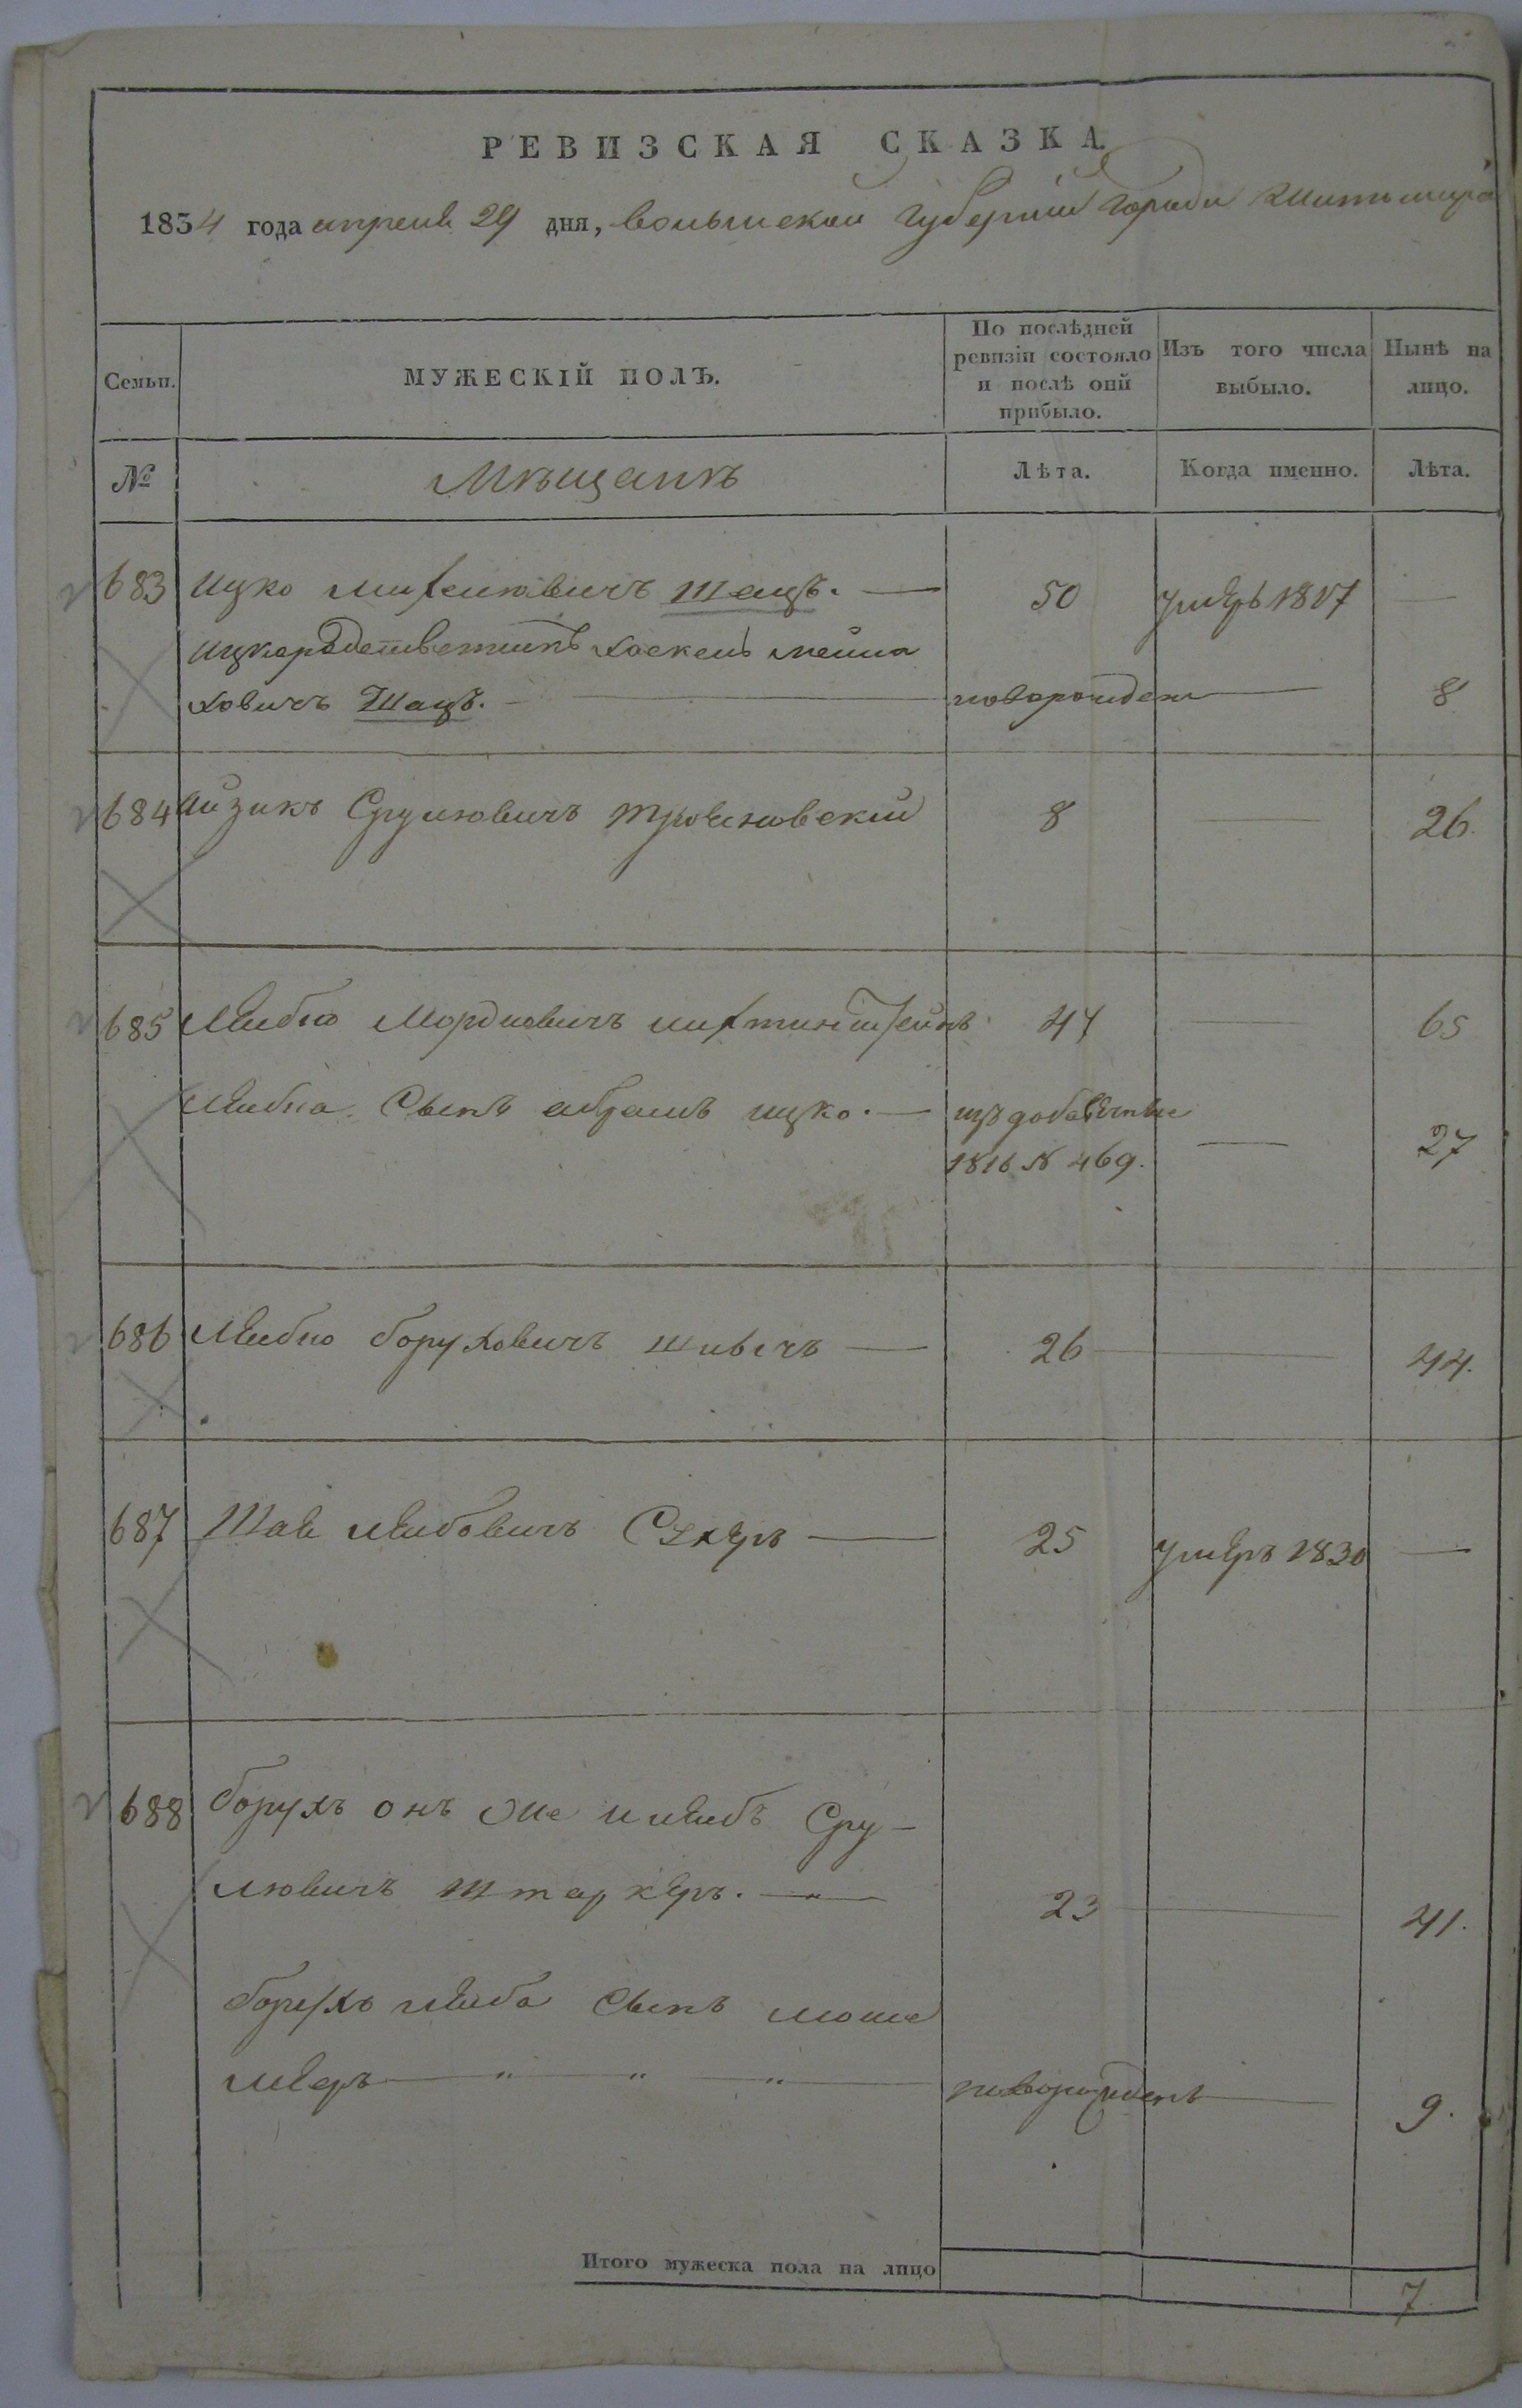 РЕВИЗСКАЯ СКАЗКА.
1834 года апреля 29 дня, волынской губернии города Житомира
Семьи.
МУЖЕСКІЙ ПОЛЪ.
По послѣдней ревизіи состояло и послѣ оній прибыло.
Изъ того числа выбыло.
Нынѣ на лицо.
№
Мѣщанъ
Лѣта.
Когда именно.
Лѣта.
683 Ицко Шацъ. — 50 умеръ 1817 —
Ицка родственникъ хаскель мейла
ховичъ Шацъ. — новорожден — 8
684 Айзикъ Срулювичъ 8 — 26.
685 Лейбко Мордковичъ лихтинштейнъ 47 — 65
Лейбка Сынъ абрамъ ицко. — изъ добавочныхъ
1816 № 469. — 27
686 Лейбко боруховичъ — 26 — 44.
687 лейбовичъ — 25 умеръ 1830 —
688 борухъ онъ же и лейбъ Сру-
люvичъ штаркеръ. — 23 — 41.
борухъ лейба Сынъ моше
мееръ — " — " — " — новорожденъ — 9.
Итого мужеска пола на лицо 7